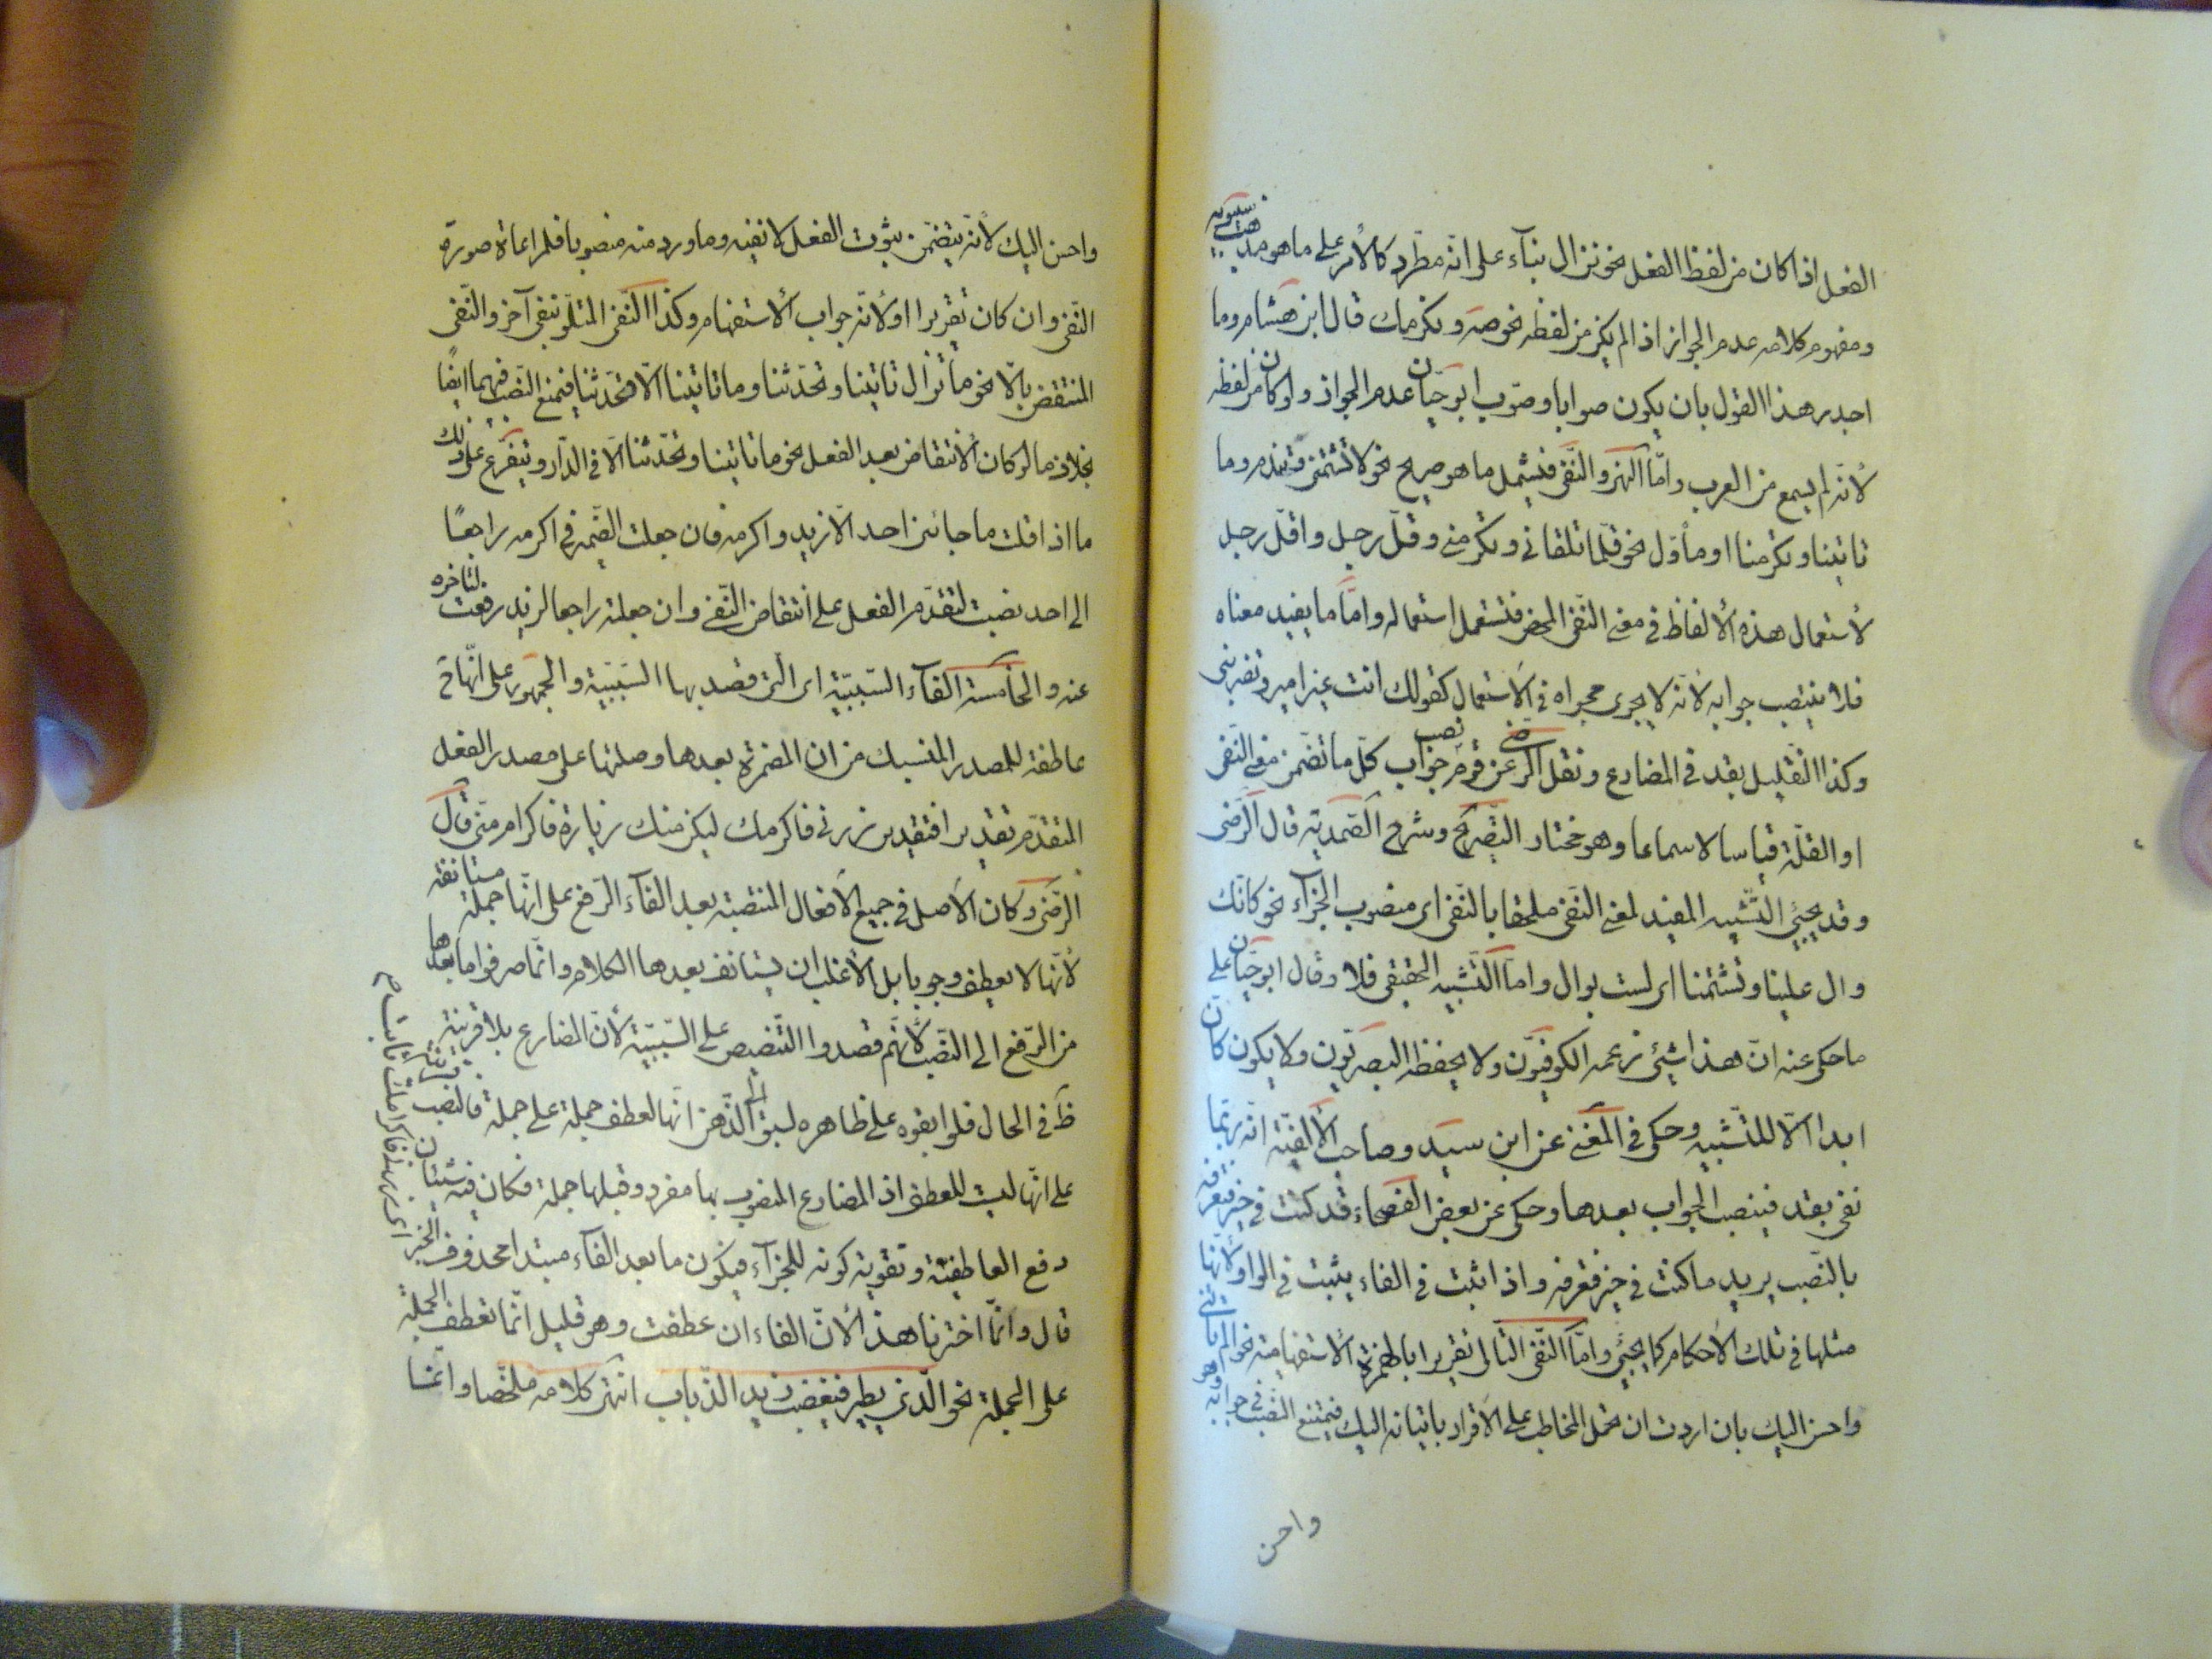 الفعل اذا كان من لفظ الفعل نحو نزال بناء على انّه مطّرد كالأمر على ما هو مذهب سيبويه
ومفهوم كلامه عدم الجواز اذا لم يكن من لفظه نحو صه ونكرمك قال ابن هشام وما
اجدر هذا القول بان يكون صوابا وصوّب ابو حيّان عدم الجواز ولو كان من لفظه
لأنّه لم يسمع من العرب وامّا النهى والنّفى فيشمل ما هو صريح نحو لا تشتمنى و وما
تاتينا وتكرمنا او مأوّل نحو قلّما تلقانى وتكرمنى وقلّ رجل واقلّ رجل
لأستعمال هذه الألفاظ فى معنى النّفى المحض فتستعمل استعماله وامّا ما يفيد معناه
فلا ينتصب جوابه لأنّه لا يجرى مجراه فى الاستعمال كقولك انت غير امير وتضربنى
وكذا التّقليل بقد فى المضارع ونقل الرّضى عن قوم نصب جواب كلّ ما تضمّن معنى النّفى
او القلّة قياسا لا سماعا وهو مختار التّصريح وشرح الصّمديّة قال الرّضى
وقد يجيئ التّشبيه المفيد لمعنى النّفى ملحقا بالنّفى اى منصوب الجزآء نحو كانّك
وال علينا وتشتمنا اى لست بوال وامّا التّشبيه الحقيقى فلا وقال ابو حيّان على
ما حكى عنه انّ هذا شيئ زعمه الكوفيّون ولا يحفظه البصريّون ولا يكون كانّ
ابدا الّا للتّشبيه وحكى فى المغنى عن ابن سيد وصاحب الألفيّة انّه ربّما
نفى بقد فينصب الجواب بعدها وحكى عن بعض الفصحاء قد كنت فى خير فتعرفه
بالنّصب يريد ما كنت فى خير فتعرفه واذا ثبت فى الفاء يثبت فى الواو لأنها
مثلها فى تلك الأحكام كما يجيئ وامّا النّفى التّالى تقريرا بالهمزة الأستفهاميّة نحو الم تاتنى
واحسن اليك بان اردت ان تحمل المخاطب على الأقرار باتيانه اليك فيمتنع النّصب فى جوابه وهو
واحسن
واحسن اليك لأنّه يتضمّن ثبوت الفعل لا نفيه وما ورد منه منصوبا فلمراعاة صورة
النّفى وان كان تقريرا او لأنّه جواب الأستفهام وكذا النّفى المتلوّ بنفى آخر والنّفى
المنتقض بالّا نحو ما تزال تاتينا وتحدّثنا وما تاتينا الّا فتحدّثنا فيمتنع النّصب فيهما ايضًا
بخلاف ما لو كان الأنتقاض بعد الفعل نحو ما تاتينا وتحدّثنا الّا فى الدّار ويتفرّع على ذلك
ما اذا قلت ما جائنى احد الّا زيد واكرمه فان جعلت الضّمير فى اكرمه راجعًا
الى احد نصبت لتقدّم الفعل على انتقاض النّفى وان جعلته راجعا لزيد رفعت لتاخره
عنه والخامسة الفآء السّببيّة اى الّتى قصد بها السّببيّة والجمهور على انّها ح
عاطفة للمصدر المنسبك من ان المضمرة بعدها وصلتها على مصدر الفعل
المتقدّم تقديرا فتقدير زرنى فاكرمك ليكن منك زيارة فاكرام منّى قال
الرّضى وكان الأصل فى جميع الأفعال المنتصبة بعد الفآء الرّفع على انّها جملة مستانفة
لأنّها لا يعطف وجوبا بل الأغلب ان يستانف بعدها الكلام وانّما صرفوا ما بعدها
من الرّفع الى النّصب لأنّهم قصدوا التّنصيص على السّببيّة لأنّ المضارع بلا قرينة
ظ فى الحال فلو ابقوه على ظاهره لسبق الى الذّهن انّها لعطف جملة على جملة فالنّصب قرينة
على انّها ليست للعطف اذ المضارع المنصوب بها مفرد وقبلها جملة فكان فيه شيئان
دفع العاطفيّة وتقوية كونه للجزآء فيكون ما بعد الفآء مبتدا محذوف الخبر
اى زرنى فاكرامك ثابت م
قال وانّما اخترنا هذا لأنّ الفاء ان عطفت وهو قليل انّما تعطف الجملة
على الجملة نحو الّذى يطير فيغضب زيد الذّباب انتهى كلامه ملخّصا وانّما